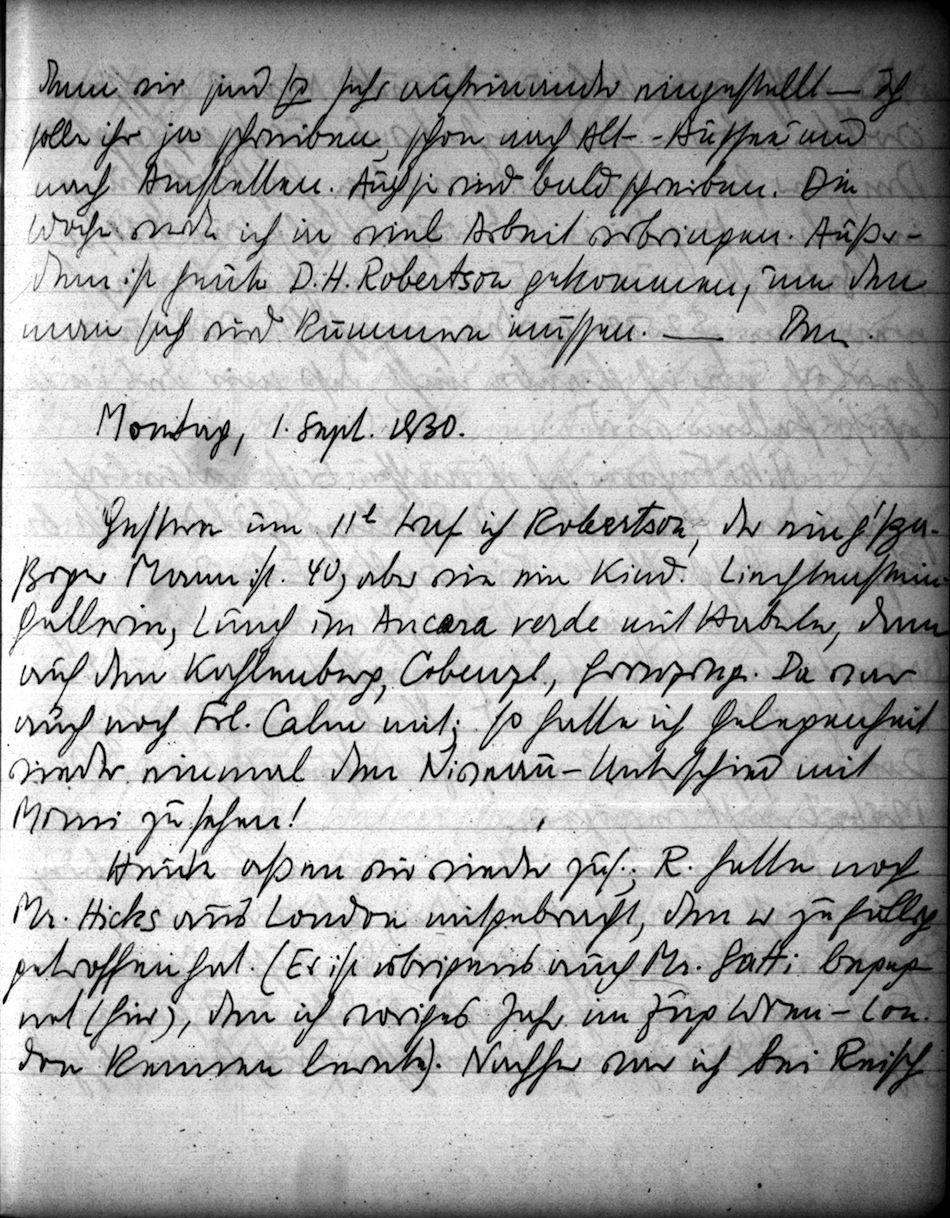 denn wir sind so sehr aufeinander eingestellt — Ich
solle ihr ja schreiben, schon nach Alt-Aussee und
nach Amstetten. Auch sie wird bald schreiben. Die
Woche werde ich in viel Arbeit verbringen. Außer-
dem ist heute D. H. Robertson gekommen, um den
man sich wird kümmern müssen. —
Montag, 1. Sept. 1930.
Gestern um 11h traf ich Robertson, der ein
Mann ist. 40, aber wie ein Kind. Liechtenstein
Gallerie, Lunch im Ancora verde mit Haberler, dann
auf den Kahlenberg, Cobenzl, Grinzing. Da war
auch noch Frl. Calm mit; so hatte ich Gelegenheit
wieder einmal den Niveau-Unterschied mit
zu sehen!
Heute aßen wir wieder zus.; R. hatte noch
Mr. Hicks aus London mitgebracht, den er zufällig
getroffen hat. (Er ist übrigens auch Mr. Gatti begeg-
net (hier), den ich voriges Jahr im Zug Wien-Lon-
don kennen lernte). Nachher war ich bei Reisch